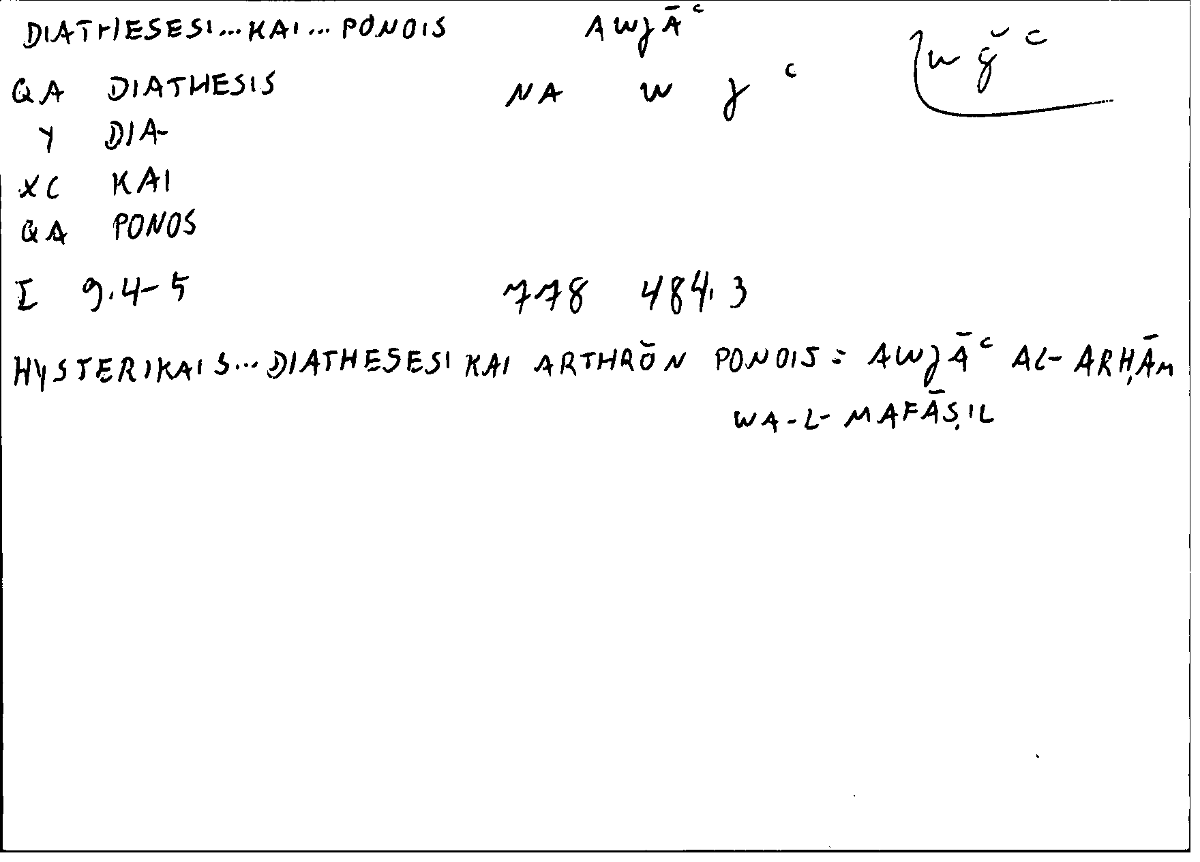 DIATHESESI...KAI... PONOIS AWJĀᶜ wǧᶜ
QA DIATHESIS NA W J ᶜ
Y DIA-
XC KAI
QA PONOS
I 9.4-5 778 484.3
HYSTERIKAIS...DIATHESESI KAI ARTHRŌN PONOIS = AWJĀᶜ AL-ARḤĀM
WA-L-MAFĀṢIL